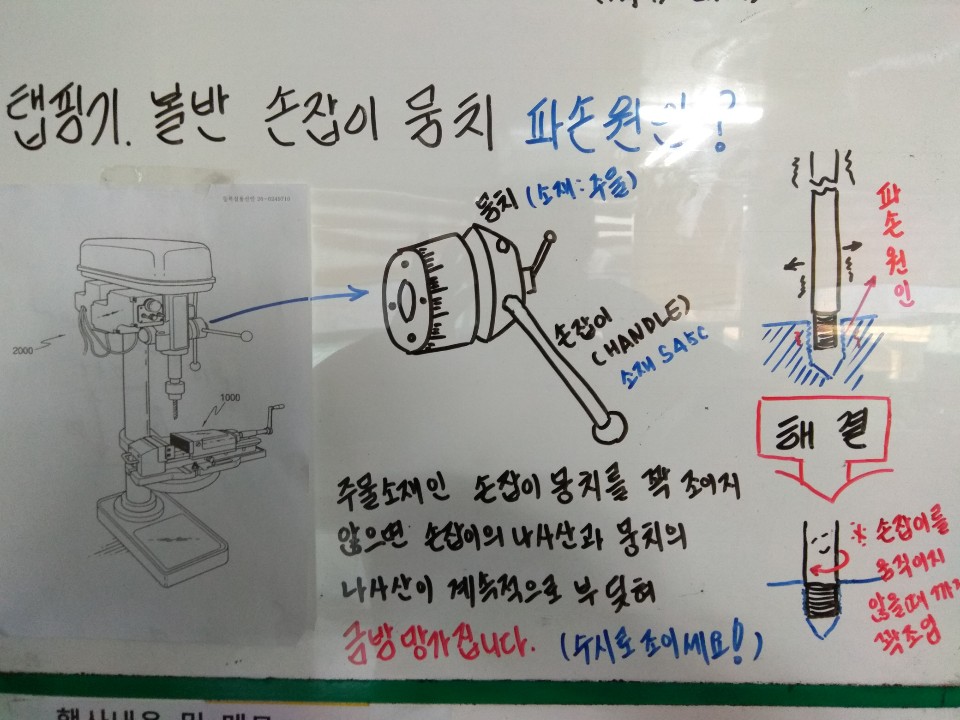 탭핑기. 볼반 손잡이 뭉치 파손원인?
2000
1000
뭉치 (소재:주물)
손잡이
(HANDLE)
소재 S45C
파손원인
해결
주물소재인 손잡이 뭉치를 꽉 조이지
않으면 손잡이의 나사산과 뭉치의
나사산이 계속적으로 부딪혀
금방 망가집니다. (수시로 조이세요!)
※ 손잡이를
움직이지
않을때 까지
꽉조임